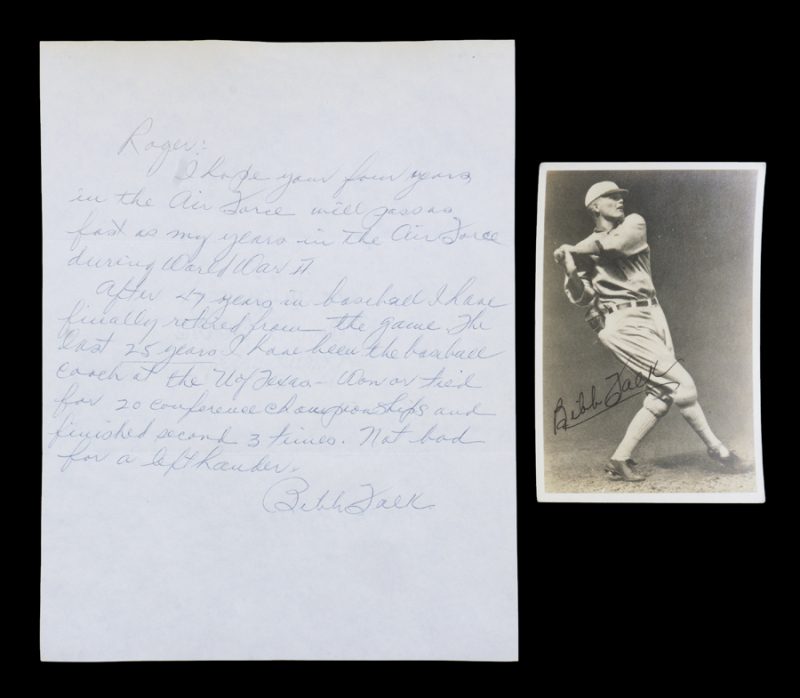 Roger:
I hope your four years
in the Air Force will pass as
fast as my years in the Air Force
during World War II.
After 47 years in baseball I have
finally retired from the game. The
last 25 years I have been the baseball
coach at the U of Texas - Won or tied
for 20 conference championships and
finished second 3 times. Not bad
for a left hander.
Bibb Falk
Bibb Falk